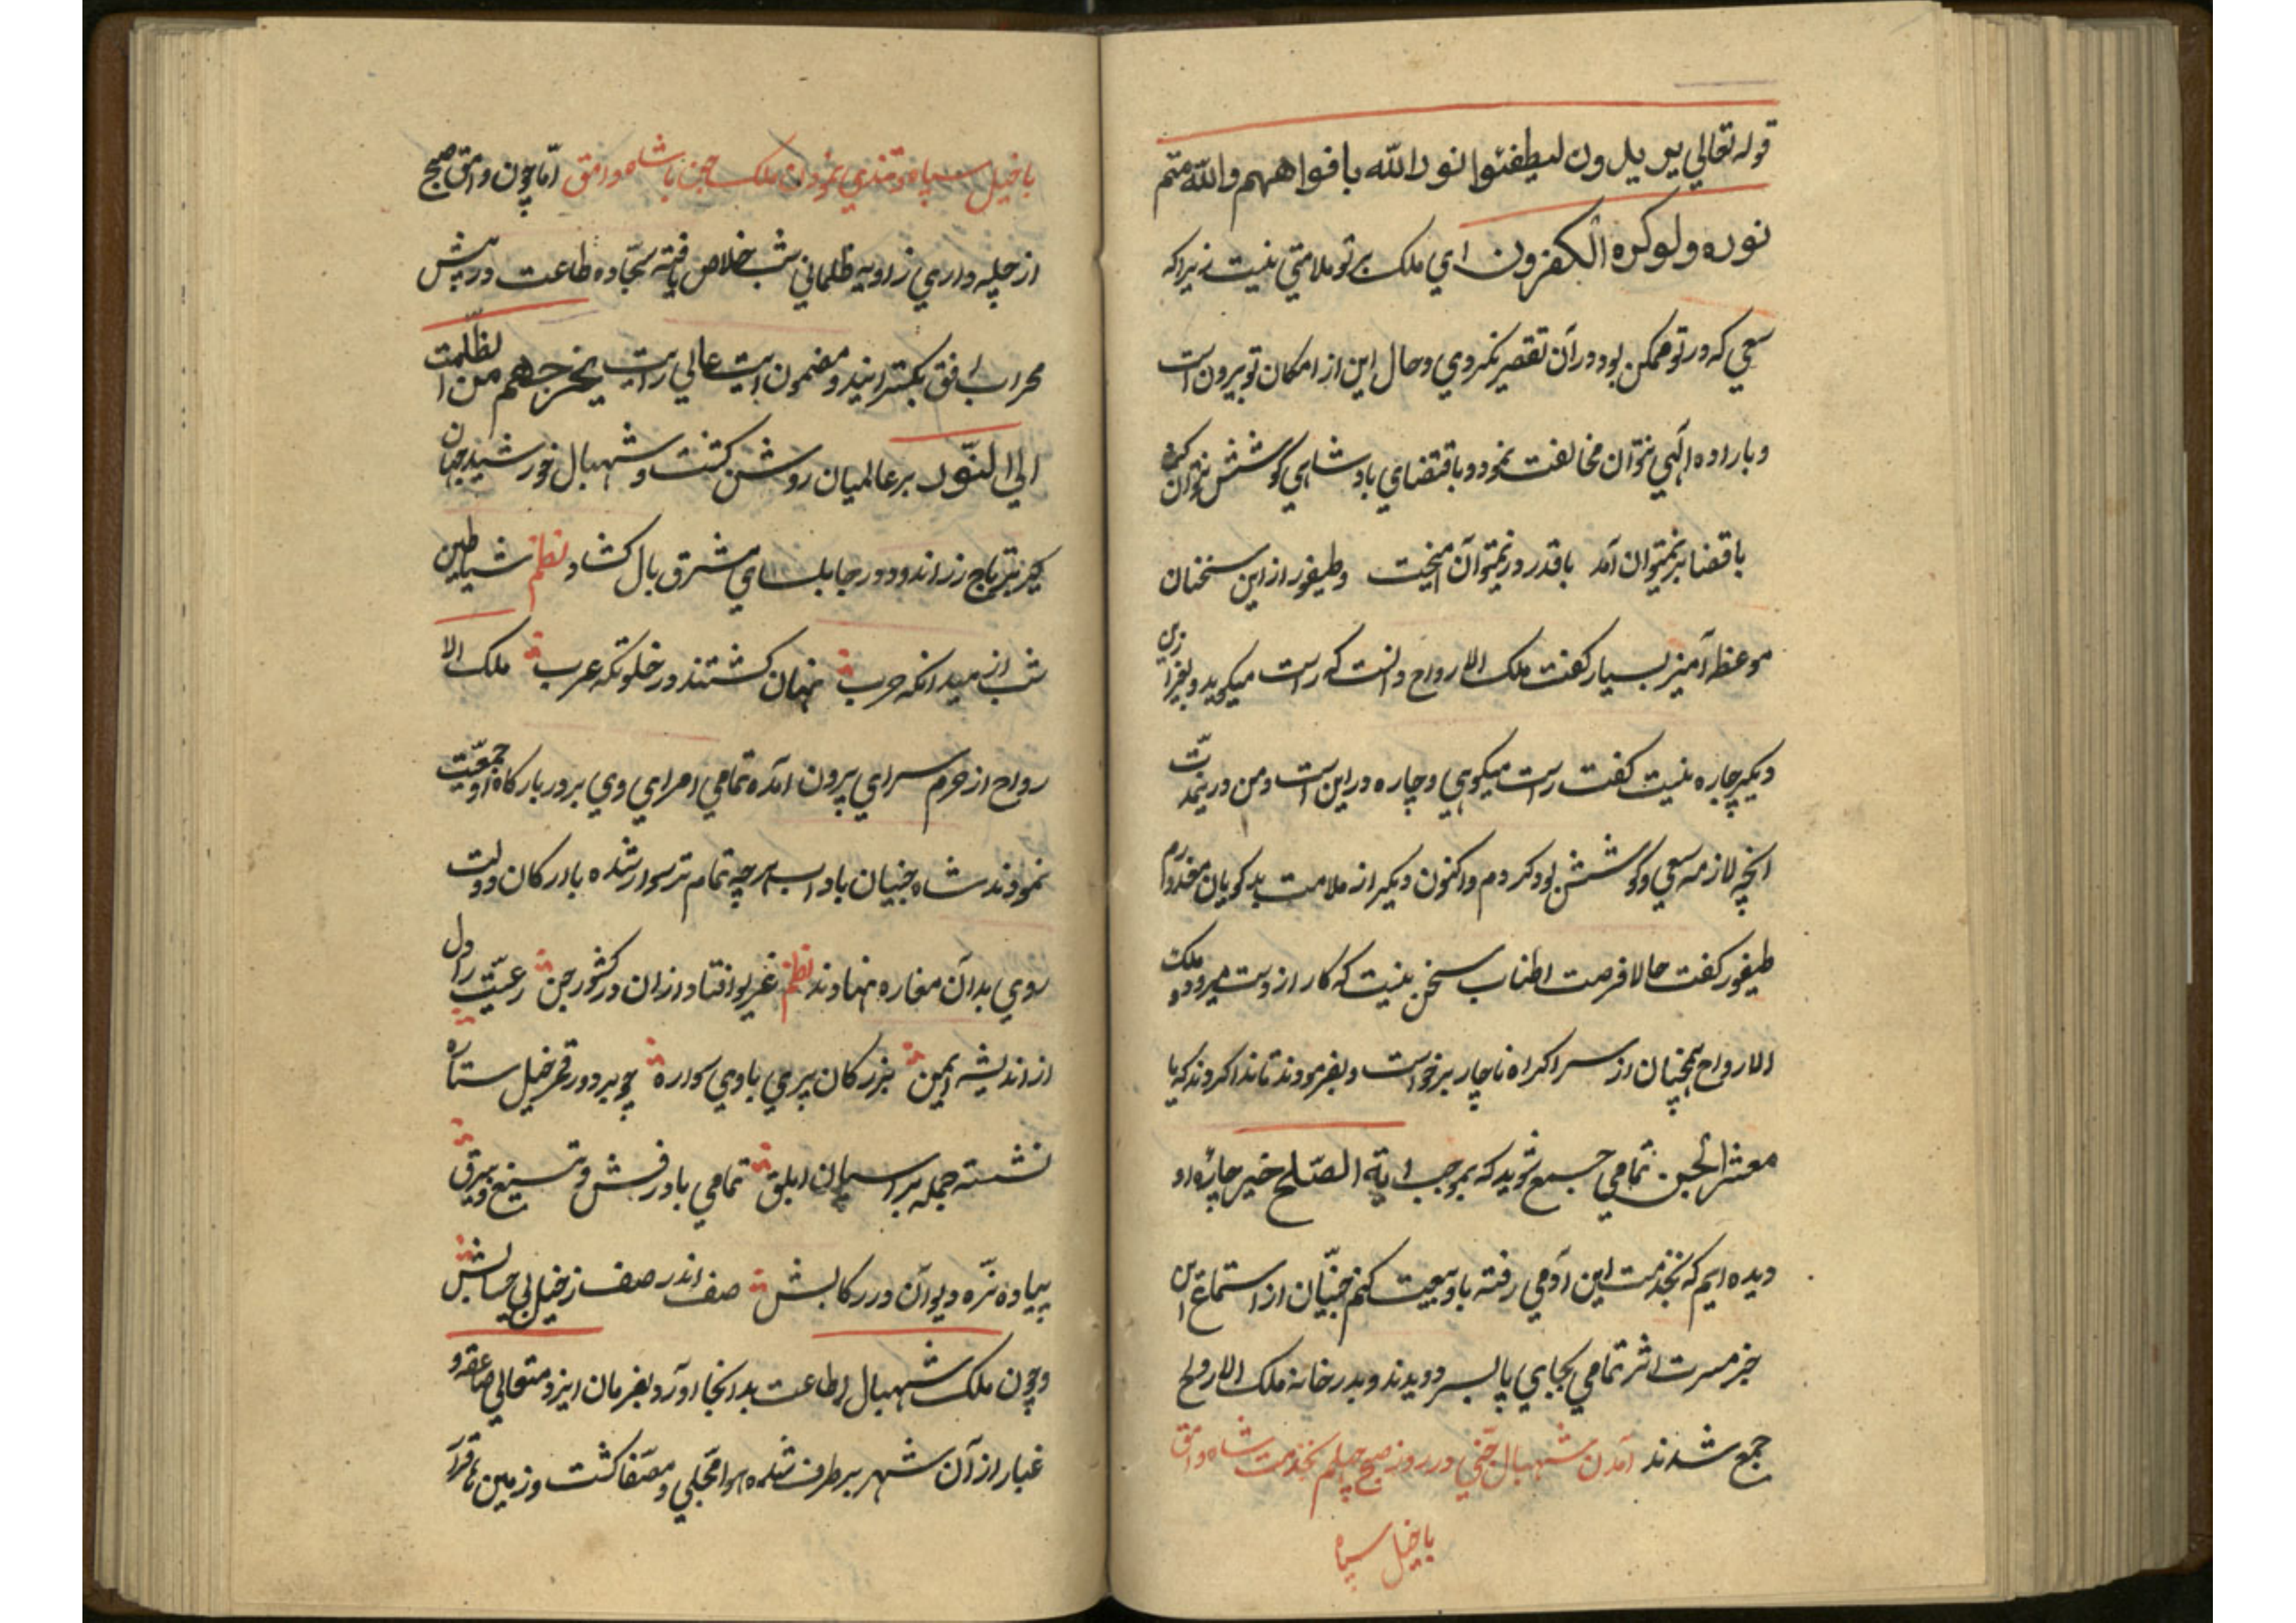 قوله تعالي يريدون ليطفئوا نور الله بافواههم والله متم
نوره ولوكره الكفرون اي ملك برتو ملامتي نيست زيراكه
سعي كه درتو ممكن بود دران تقصير نكردي وحال اين از امكان تو بيرون است
وباراده الهي نتوان مخالفت نمود وباقتضاي بادشاهي كوشش نتوان كرد
باقضا بر نميتوان آمد باقدر در نميتوان آميخت وطيفور ازاين سخنان
موعظه آميز بسيار كفت ملك الارواح دانست كه راست ميكويد وبغير ازين
ديكر چاره نيست كفت راست ميكوئي وچاره دراين است ومن درينمدّت
انچه لازمه سعي وكوشش بود كردم واكنون ديكر از ملامت بدكويان
طيفور كفت حالا فرصت اطناب سخن نيست كه كار از دست ميرود ملك
الارواح همچنان از سر اكراه ناچار برخواست وبفرمودند تا ندا كردند كه يا
معشر الجن تمامي جمع شويد كه بموجب اية الصّلح خير چاره او
ديده ايم كه بخدمت اين آدمي رفته باو بيعت كنم جنّيان از استماع اين
خبر مسرت اثر تمامي بجاي پا بسر دويدند وبدرخانه ملك الارواح
جمع شدند آمدن شهبال جنّي در روز صبح چهلم بخدمت شاه وامق
باخيل سپاه
باخيل سپاه و نمودن ملك جن با شاه وامق امّا چون وامق صبح
از چله داري زاويه ظلماني شب خلاص يافته سجّاده طاعت در پيش
محراب افق بكسترانيد ومضمون ايت عالي رايت يخرجهم من الظّلمت
الي النّور برعالميان روشن كشت وشهبال خورشيد جهان
كير بر تاج زراندود در جابلساي مشرق بال كشاد نظم شياطين
شب از ميدانكه حرب نهان كشتند در خلوتكه غرب ملك الا
رواح از حرم سراي بيرون آمده تمامي امراي وي بر در باركاه او جمعيّت
نمودند شاه جنيان باداب هرچه تمام تر سوار شده با اركان دولت
روي بدان مغاره نهادند نظم غريو افتاد ازان در كشور جن رعيّت را دل
از انديشه ايمن بزركان پري با وي سواره چو بر دور قمر خيل ستاره
نشسته جمله بر اسپان ابلق تمامي با درفش وتيغ وبيرق
پياده نرّه ديوان در ركابش صف اندر صف ز خيل بي حسابش
وچون ملك شهبال اطاعت بدانجا آورد بفرمان ايزد متعالي صاعقه و
غبار از آن شهر برطرف شده هوا مجلي ومصفّا كشت وزمين